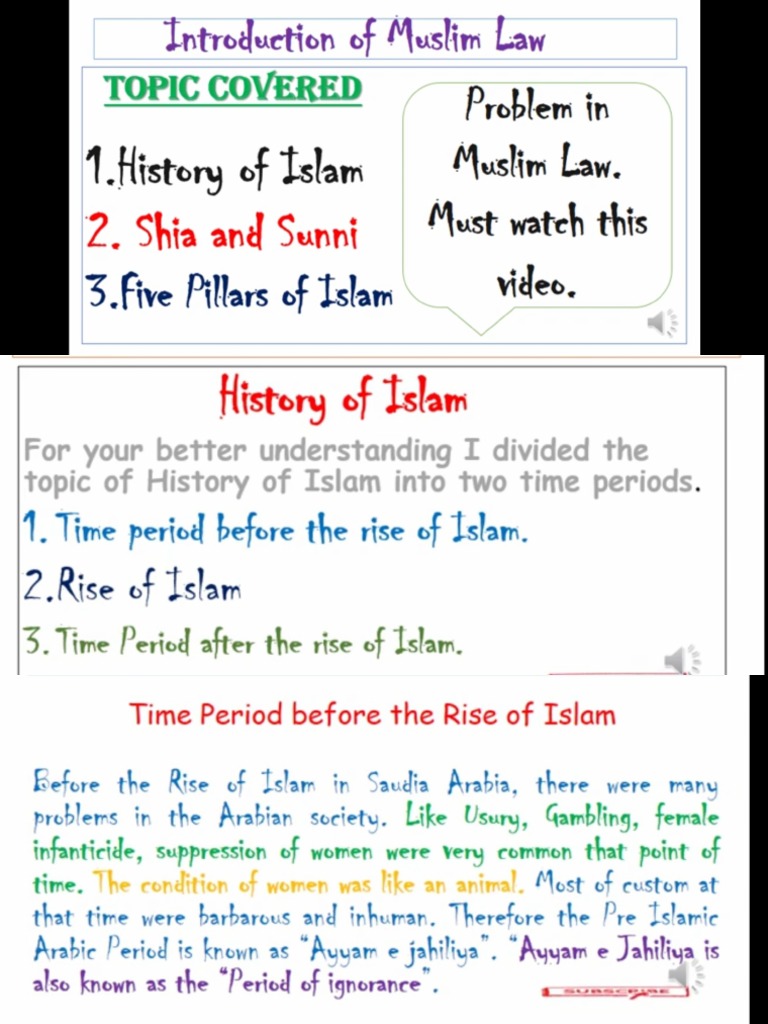 Introduction of Muslim Law
TOPIC COVERED
1.History of Islam
2. Shia and Sunni
3.Five Pillars of Islam
Problem in
Muslim Law.
Must watch this
video.
History of Islam
For your better understanding I divided the
topic of History of Islam into two time periods.
1. Time period before the rise of Islam.
2.Rise of Islam
3. Time Period after the rise of Islam.
Time Period before the Rise of Islam
Before the Rise of Islam in Saudia Arabia, there were many
problems in the Arabian society. Like Usury, Gambling, female
infanticide, suppression of women were very common that point of
time. The condition of women was like an animal. Most of custom at
that time were barbarous and inhuman. Therefore the Pre Islamic
Arabic Period is known as "Ayyam e jahiliya". "Ayyam e Jahiliya is
also known as the "Period of ignorance".
SUBSCRIBE